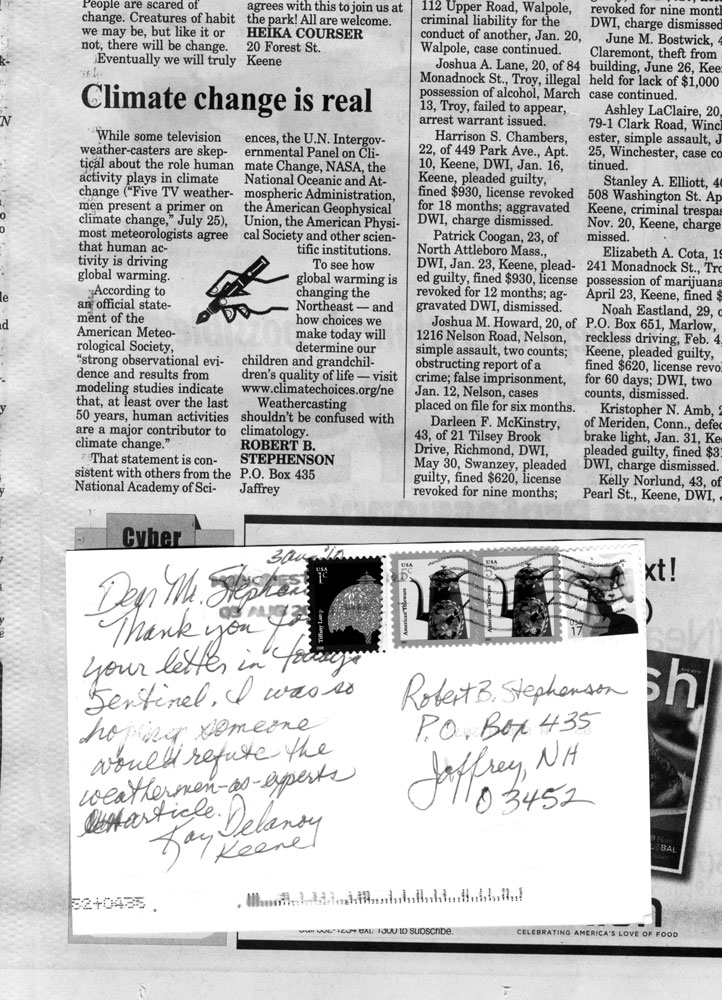 People are scared of
change. Creatures of habit
we may be, but like it or
not, there will be change.
Eventually we will truly
agrees with this to join us at
the park! All are welcome.
HEIKA COURSER
20 Forest St.
Keene
Climate change is real
While some television
weather-casters are skep-
tical about the role human
activity plays in climate
change (“Five TV weather-
men present a primer on
climate change,” July 25),
most meteorologists agree
that human ac-
tivity is driving
global warming.
According to
an official state-
ment of the
American Meteo-
rological Society,
“strong observational evi-
dence and results from
modeling studies indicate
that, at least over the last
50 years, human activities
are a major contributor to
climate change.”
That statement is con-
sistent with others from the
National Academy of Sci-
ences, the U.N. Intergov-
ernmental Panel on Cli-
mate Change, NASA, the
National Oceanic and At-
mospheric Administration,
the American Geophysical
Union, the American Physi-
cal Society and other scien-
tific institutions.
To see how
global warming is
changing the
Northeast — and
how choices we
make today will
determine our
children and grandchil-
dren’s quality of life — visit
www.climatechoices.org/ne
Weathercasting
shouldn’t be confused with
climatology.
ROBERT B.
STEPHENSON
P.O. Box 435
Jaffrey
112 Upper Road, Walpole,
criminal liability for the
conduct of another, Jan. 20,
Walpole, case continued.
Joshua A. Lane, 20, of 84
Monadnock St., Troy, illegal
possession of alcohol, March
13, Troy, failed to appear,
arrest warrant issued.
Harrison S. Chambers,
22, of 449 Park Ave., Apt.
10, Keene, DWI, Jan. 16,
Keene, pleaded guilty,
fined $930, license revoked
for 18 months; aggravated
DWI, charge dismissed.
Patrick Coogan, 23, of
North Attleboro Mass.,
DWI, Jan. 23, Keene, plead-
ed guilty, fined $930, license
revoked for 12 months; ag-
gravated DWI, dismissed.
Joshua M. Howard, 20, of
1216 Nelson Road, Nelson,
simple assault, two counts;
obstructing report of a
crime; false imprisonment,
Jan. 12, Nelson, cases
placed on file for six months.
Darleen F. McKinstry,
43, of 21 Tilsey Brook
Drive, Richmond, DWI,
May 30, Swanzey, pleaded
guilty, fined $620, license
revoked for nine months;
revoked for nine month
DWI, charge dismissed
June M. Bostwick, 4
Claremont, theft from
building, June 26, Kee
held for lack of $1,000
case continued.
Ashley LaClaire, 20,
79-1 Clark Road, Winc
ester, simple assault, J
25, Winchester, case co
tinued.
Stanley A. Elliott, 4
508 Washington St. Ap
Keene, criminal trespas
Nov. 20, Keene, charge
missed.
Elizabeth A. Cota, 19
241 Monadnock St., Tro
possession of marijuana
April 23, Keene, fined $
Noah Eastland, 29, o
P.O. Box 651, Marlow,
reckless driving, Feb. 4,
Keene, pleaded guilty,
fined $620, license revo
for 60 days; DWI, two
counts, dismissed.
Kristopher N. Amb, 2
of Meriden, Conn., defec
brake light, Jan. 31, Kee
pleaded guilty, fined $31
DWI, charge dismissed.
Kelly Norlund, 43, of
Pearl St., Keene, DWI,
Cyber
xt!
sh
3 Aug '10
Dear Mr. Stephenson
Thank you for
your letter in today's
Sentinel. I was so
hoping someone
would refute the
weathermen-as-experts
article.
Kay Delanoy
Keene
03 AUG 20
USA
1c
Tiffany Lamp
USA
5c
American Toleware
USA
American Toleware
USA
17
Robert B. Stephenson
P.O. Box 435
Jaffrey, NH
03452
52+0435
Call 352-1234 ext. 1300 to subscribe.
CELEBRATING AMERICA'S LOVE OF FOOD